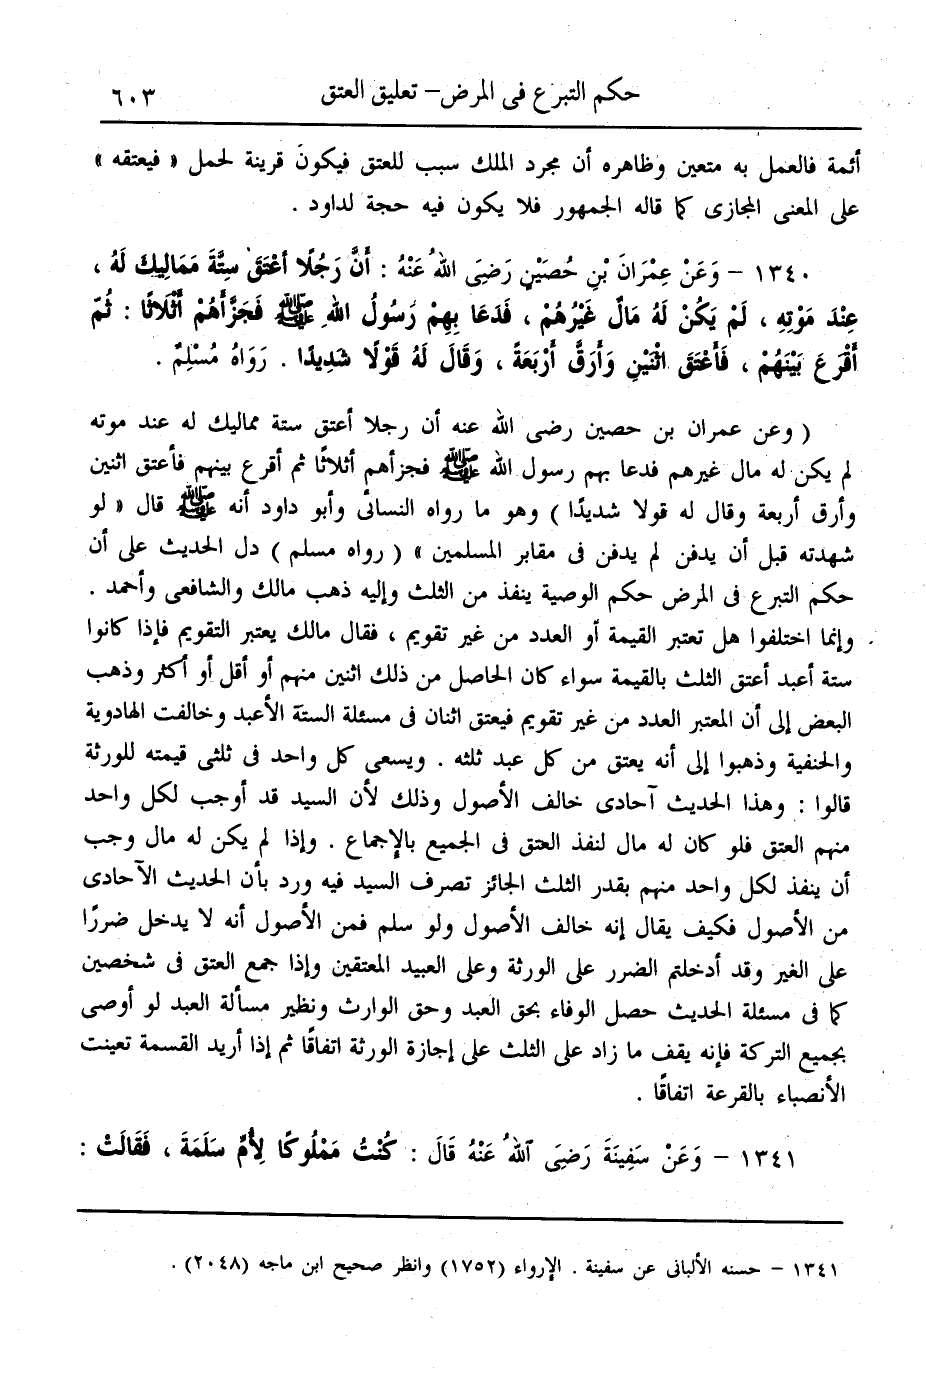 حكم التبرع فى المرض – تعليق العتق ٦٠٣
أئمة فالعمل به متعين وظاهره أن مجرد الملك سبب للعتق فيكونَ قرينة لحمل « فيعتقه »
على المعنى المجازى كما قاله الجمهور فلا يكون فيه حجة لداود .
١٣٤٠ – وَعَنْ عِمْرَانَ بْنِ حُصَيْنٍ رَضِىَ اللهُ عَنْهُ : أَنَّ رَجُلًا أعْتَقَ سِتَّةَ مَمَالِيكَ لَهُ ،
عِنْدَ مَوْتِهِ ، لَمْ يَكُنْ لَهُ مَالٌ غَيْرُهُمْ ، فَدَعَا بِهِمْ رَسُولُ اللهِ ﷺ فَجَزَّأَهُمْ أَثْلَاثًا : ثُمَّ
أَقْرَعَ بَيْنَهُمْ ، فَأَعْتَقَ اثْنَيْنِ وَأَرَقَّ أَرْبَعَةً ، وَقَالَ لَهُ قَوْلًا شَدِيدًا . رَوَاهُ مُسْلِمٌ .
( وعن عمران بن حصين رضى الله عنه أن رجلا أعتق ستة مماليك له عند موته
لم يكن له مال غيرهم فدعا بهم رسول الله ﷺ فجزأهم أثلاثًا ثم أقرع بينهم فأعتق اثنين
وأرق أربعة وقال له قولا شديدًا ) وهو ما رواه النسائى وأبو داود أنه ﷺ قال « لو
شهدته قبل أن يدفن لم يدفن فى مقابر المسلمين » ( رواه مسلم ) دل الحديث على أن
حكم التبرع فى المرض حكم الوصية ينفذ من الثلث وإليه ذهب مالك والشافعى وأحمد .
وإنما اختلفوا هل تعتبر القيمة أو العدد من غير تقويم ، فقال مالك يعتبر التقويم فإذا كانوا
ستة أعبد أعتق الثلث بالقيمة سواء كان الحاصل من ذلك اثنين منهم أو أقل أو أكثر وذهب
البعض إلى أن المعتبر العدد من غير تقويم فيعتق اثنان فى مسئلة الستة الأعبد وخالفت الهادوية
والحنفية وذهبوا إلى أنه يعتق من كل عبد ثلثه . ويسعى كل واحد فى ثلثى قيمته للورثة
قالوا : وهذا الحديث آحادى خالف الأصول وذلك لأن السيد قد أوجب لكل واحد
منهم العتق فلو كان له مال لنفذ العتق فى الجميع بالإجماع . وإذا لم يكن له مال وجب
أن ينفذ لكل واحد منهم بقدر الثلث الجائز تصرف السيد فيه ورد بأن الحديث الآحادى
من الأصول فكيف يقال إنه خالف الأصول ولو سلم فمن الأصول أنه لا يدخل ضررًا
على الغير وقد أدخلتم الضرر على الورثة وعلى العبيد المعتقين وإذا جمع العتق فى شخصين
كما فى مسئلة الحديث حصل الوفاء بحق العبد وحق الوارث ونظير مسألة العبد لو أوصى
بجميع التركة فإنه يقف ما زاد على الثلث على إجازة الورثة اتفاقًا ثم إذا أريد القسمة تعينت
الأنصباء بالقرعة اتفاقًا .
١٣٤١ – وَعَنْ سَفِينَةَ رَضِىَ ٱللهُ عَنْهُ قَالَ : كُنْتُ مَمْلُوكًا لِأُمِّ سَلَمَةَ ، فَقَالَتْ :
١٣٤١ – حسنه الألبانى عن سفينة . الإرواء (١٧٥٢) وانظر صحيح ابن ماجه (٢٠٤٨) .